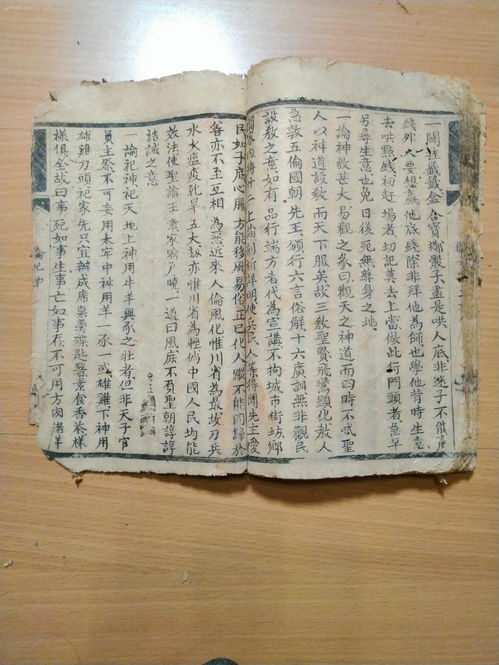 一闗
錢外人要想贏他底錢除非拜他為師也學他昔時生意
去哄㸃錢初赶塲者切記莫去上當做此行門頭者急早
另尋生意也免日後死無塟身之地
一論神教甚大易觀之彖曰觀天之神道而四時不忒聖
人以神道設教而天下服矣故三教聖賢飛鸞顯化教人
急敦五倫國朝先王頒行六言俗解十六廣訓無非觀民
設教之意如有品行端方者代為宣講不拘城市街坊鄉
民如子庻心服方能移風易俗正已化人
善亦不至互相為惡近來人倫風化惟川省為最故刀兵
水火瘟疫乹旱五大刼亦惟川省為輕倘中國人民均能
效法使聖諭王章家喻戸曉一道同風庻不負聖朝諄諄
誥誡之意
一論祀神祀天地上神用牛羊與豕之壮者但非天子官
員主祭不可妄用太牢中神用羊一豕一或雄雞下神用
雄雞刀頭祀家先只宜辦成席裏湯碟匙醫素食香茶樣
樣俱全故曰事死如事生事亡如事存不可用方肉
論祀神